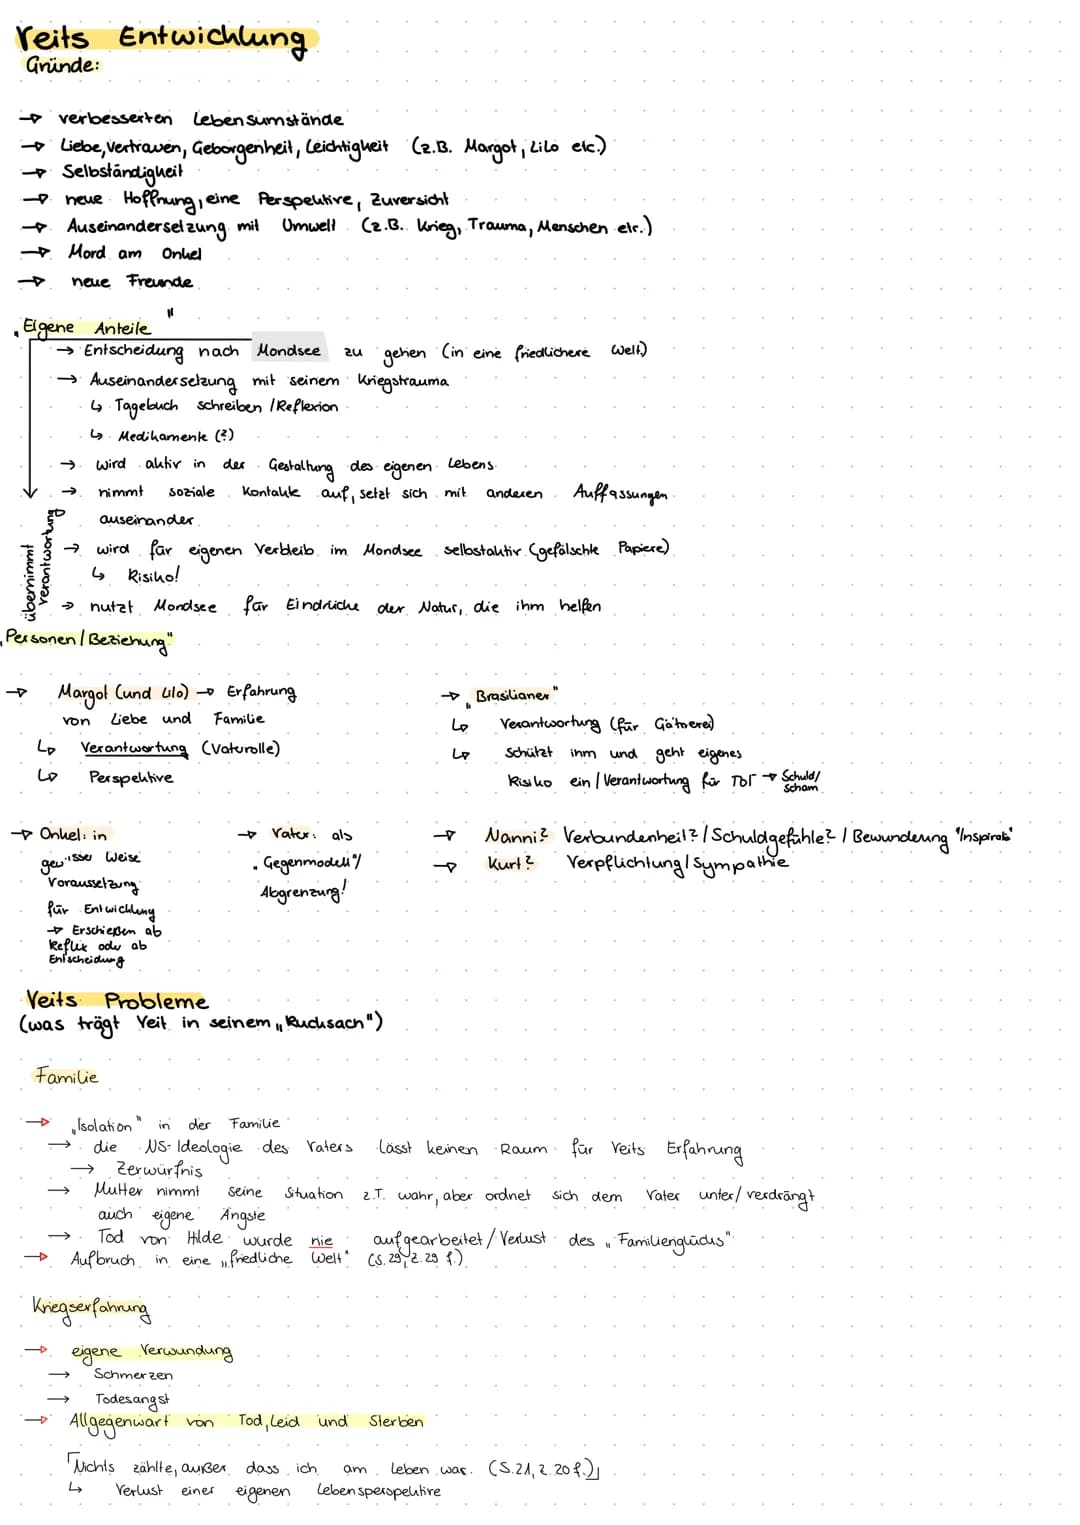 Veits Entwicklung
Gründe:
→ verbesserten Lebensumstände
→ Liebe, Vertrauen, Geborgenheit, Leichtigkeit (z.B. Margot, Lilo etc.)
→ Selbständigkeit
→ neue Hoffnung, eine Perspektive, Zuversicht
→ Auseinandersetzung mit Umwelt (z.B. Krieg, Trauma, Menschen etc.)
→ Mord am Onkel
→ neue Freunde
„Eigene Anteile"
→ Entscheidung nach Mondsee zu gehen (in eine friedlichere Welt)
→ Auseinandersetzung mit seinem Kriegstrauma
↳ Tagebuch schreiben / Reflexion
↳ Medikamente (?)
→ wird aktiv in der Gestaltung des eigenen Lebens
→ nimmt soziale Kontakte auf, setzt sich mit anderen Auffassungen
auseinander
→ wird für eigenen Verbleib im Mondsee selbstaktiv (gefälschte Papiere)
↳ Risiko!
→ nutzt Mondsee für Eindrücke der Natur, die ihm helfen
übernimmt
Verantwortung
„Personen / Beziehung"
→ Margot (und Lilo) → Erfahrung
von Liebe und Familie
↳ Verantwortung (Vaturolle)
↳ Perspektive
→ „Brasilianer"
↳ Verantwortung (für Gätnerei)
↳ schützt ihm und geht eigenes
Risiko ein / Verantwortung für Tot → Schuld/
Scham
→ Onkel: in
gewisser Weise
Voraussetzung
für Entwicklung
→ Erschießen ab
Reflex oder ab
Entscheidung
→ Vater: als
„Gegenmodell"/
Abgrenzung!
→ Nanni? Verbundenheit? / Schuldgefühle? / Bewunderung "Inspirat"
→ Kurt? Verpflichtung / Sympathie
Veits Probleme
(was trägt Veit in seinem „Rucksack")
Familie
→ „Isolation" in der Familie
→ die NS-Ideologie des Vaters lässt keinen Raum für Veits Erfahrung
→ Zerwürfnis
→ Mutter nimmt seine Situation z.T. wahr, aber ordnet sich dem Vater unter / verdrängt
auch eigene Ängste
→ Tod von Hilde wurde nie aufgearbeitet / Verlust des „Familienglücks"
→ Aufbruch in eine „friedliche Welt" (S. 29, Z. 29 f.)
Kriegserfahrung
→ eigene Verwundung
→ Schmerzen
→ Todesangst
→ Allgegenwart von Tod, Leid und Sterben
「Nichts zählte, außer dass ich am Leben war. (S. 21, Z. 20 f.)」
↳ Verlust einer eigenen Lebensperspektive